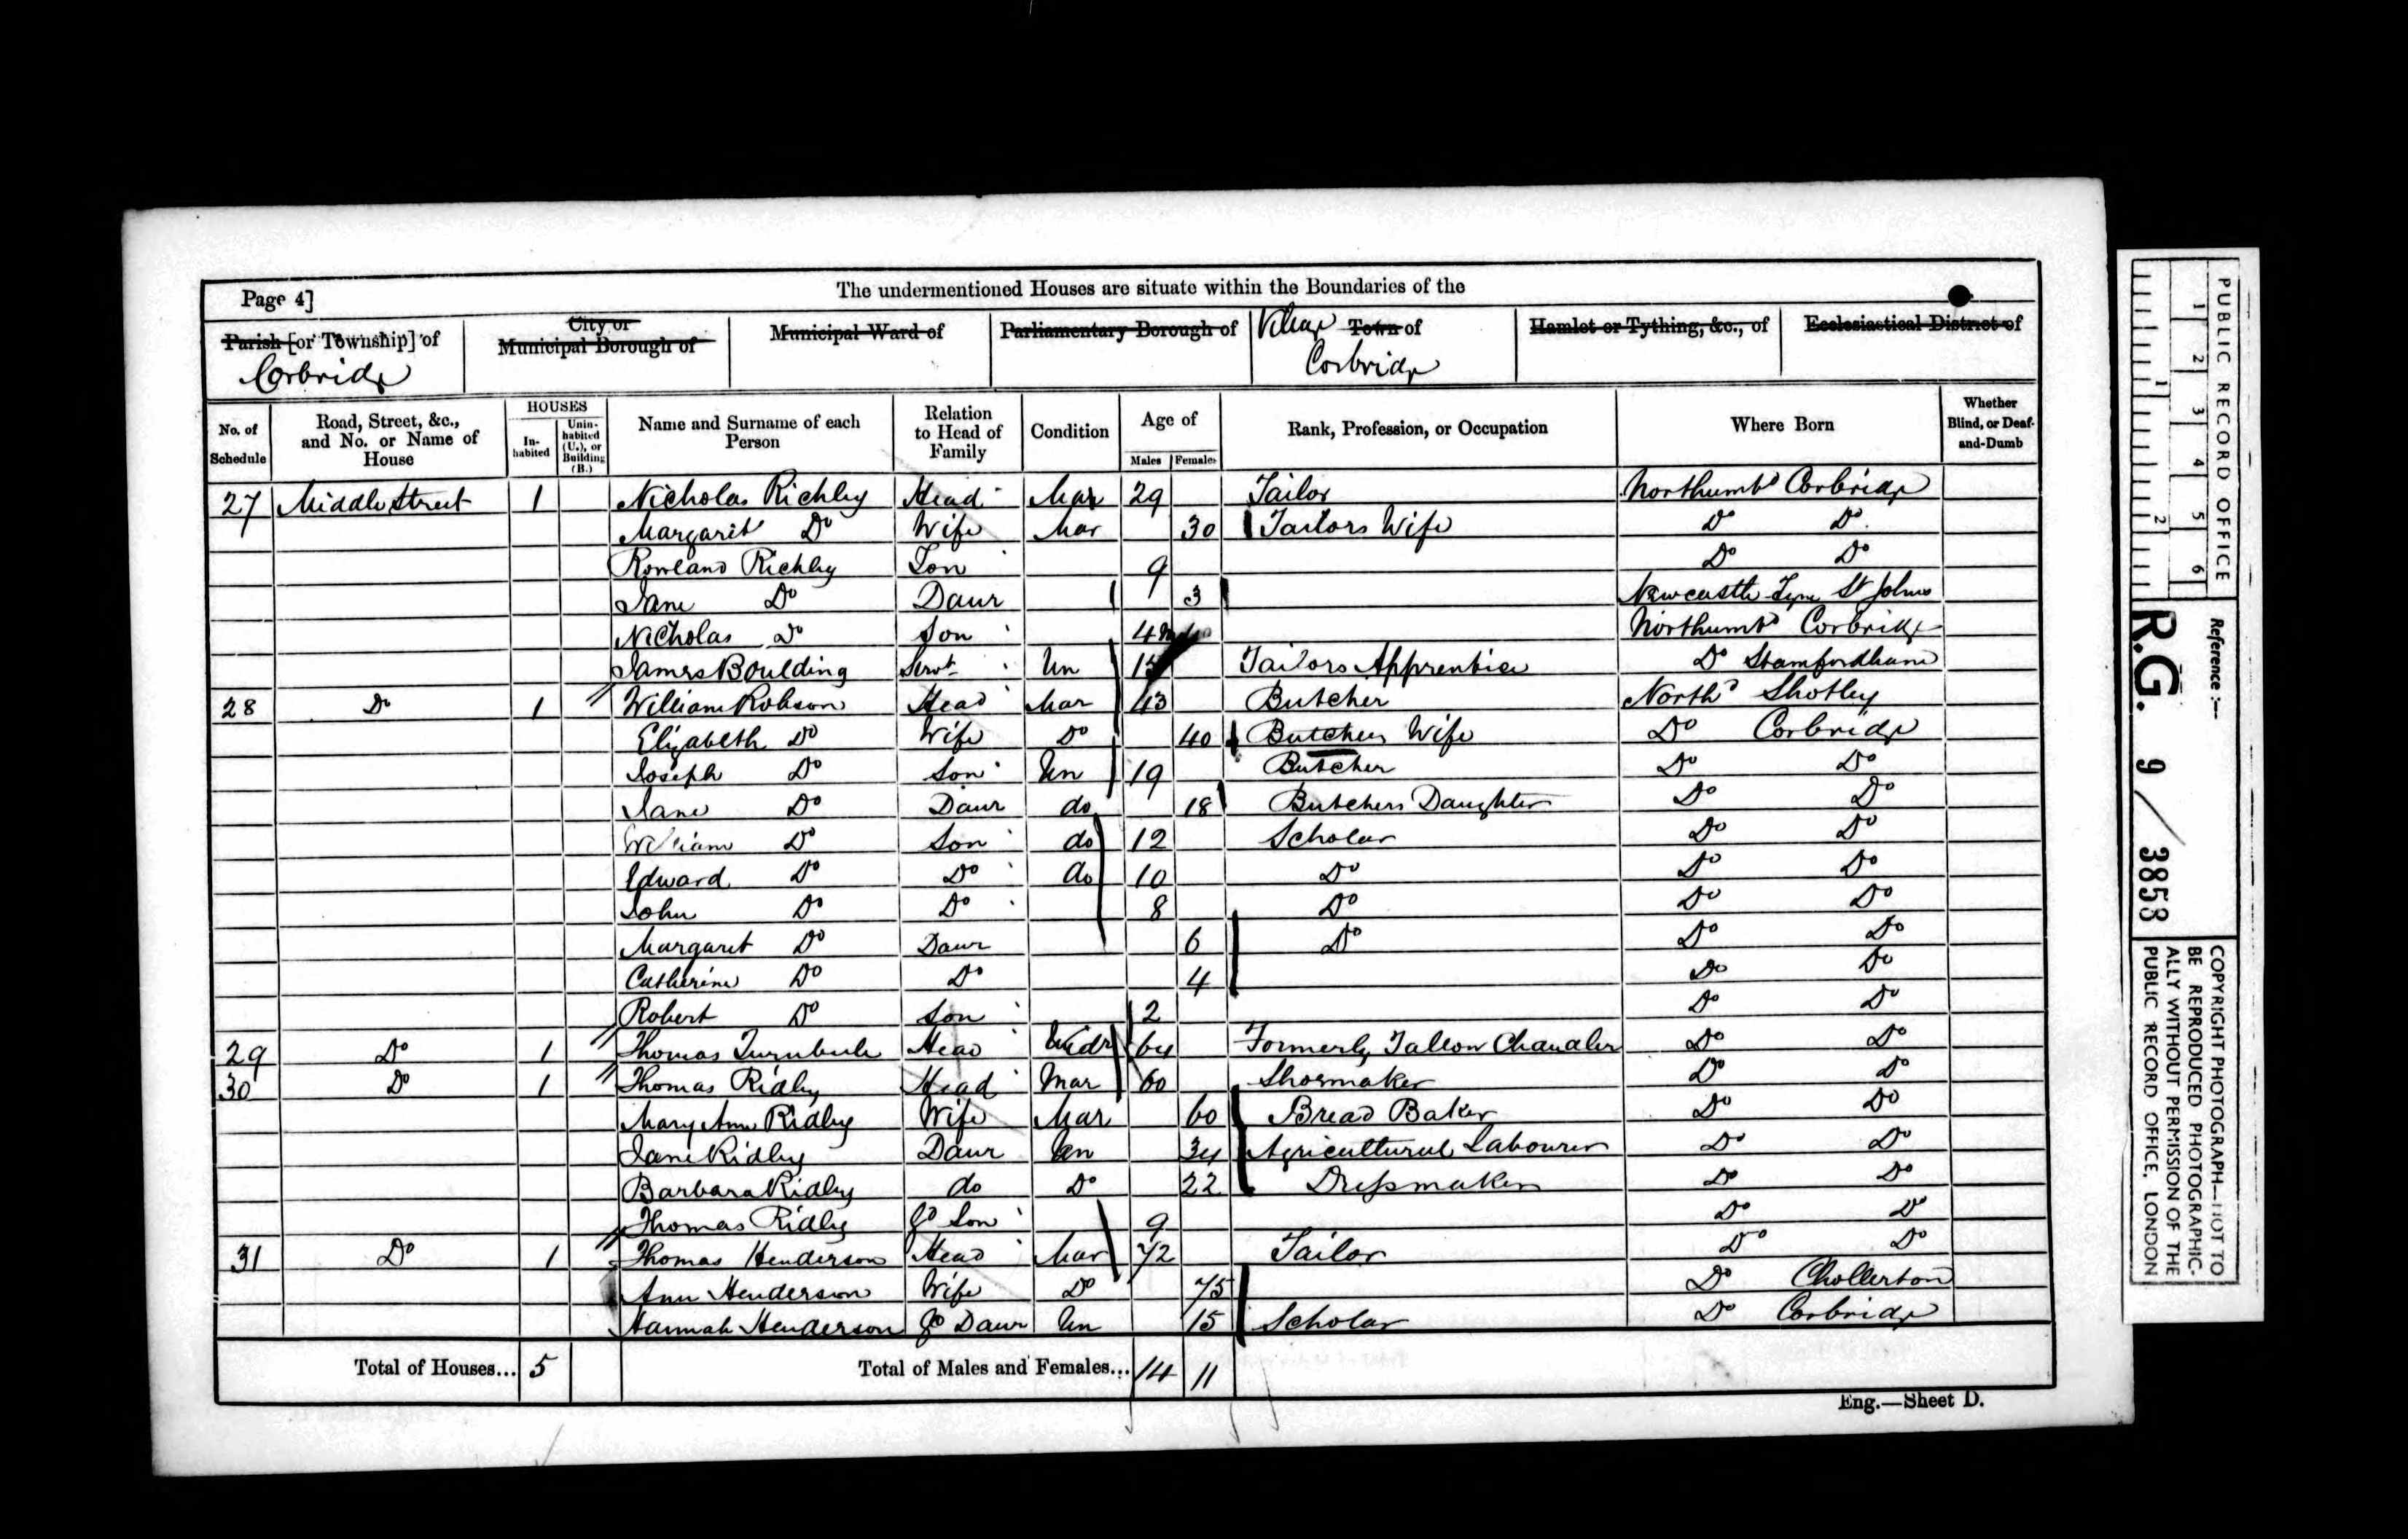 Page 4]
The undermentioned Houses are situate within the Boundaries of the
Parish [or Township] of City or Municipal Borough of Municipal Ward of Parliamentary Borough of Village Town of Hamlet or Tything, &c., of Ecclesiastical District of
Corbridge Corbridge
No. of Schedule Road, Street, &c., and No. or Name of House HOUSES In-habited Unin-habited (U.), or Building (B.) Name and Surname of each Person Relation to Head of Family Condition Age of Males Females Rank, Profession, or Occupation Where Born Whether Blind, or Deaf-and-Dumb
27 Middle Street 1 Nicholas Richley Head Mar 29 Tailor Northumbd Corbridge
Margaret Do Wife Mar 30 Tailors Wife Do Do
Rowland Richley Son 9 Do Do
Jane Do Daur 3 Newcastle Tyne St Johns
Nicholas Do Son 4 Northumbd Corbridge
James Boulding Servt Un 15 Tailors Apprentice Do Stamfordham
28 Do 1 William Robson Head Mar 43 Butcher Northd Shotley
Elizabeth Do Wife Do 40 Butchers Wife Do Corbridge
Joseph Do Son Un 19 Butcher Do Do
Jane Do Daur do 18 Butchers Daughter Do Do
William Do Son do 12 Scholar Do Do
Edward Do Do do 10 Do Do Do
John Do Do 8 Do Do Do
Margaret Do Daur 6 Do Do Do
Catherine Do Do 4 Do Do
Robert Do Son 2 Do Do
29 Do 1 Thomas Turnbull Head Widr 64 Formerly Tallow Chandler Do Do
30 Do 1 Thomas Ridley Head Mar 60 Shoemaker Do Do
Mary Ann Ridley Wife Mar 60 Bread Baker Do Do
Jane Ridley Daur Un 34 Agricultural Labourer Do Do
Barbara Ridley do Do 22 Dressmaker Do Do
Thomas Ridley Gd Son 9 Do Do
31 Do 1 Thomas Henderson Head Mar 72 Tailor Do Do
Ann Henderson Wife Do 75 Do Chollerton
Hannah Henderson Gd Daur Un 15 Scholar Do Corbridge
Total of Houses... 5 Total of Males and Females... 14 11
Eng.—Sheet D.
PUBLIC RECORD OFFICE
1 2 3 4 5 6
1 2
Reference:—
R.G. 9/3853
COPYRIGHT PHOTOGRAPH—NOT TO
BE REPRODUCED PHOTOGRAPHIC-
ALLY WITHOUT PERMISSION OF THE
PUBLIC RECORD OFFICE, LONDON